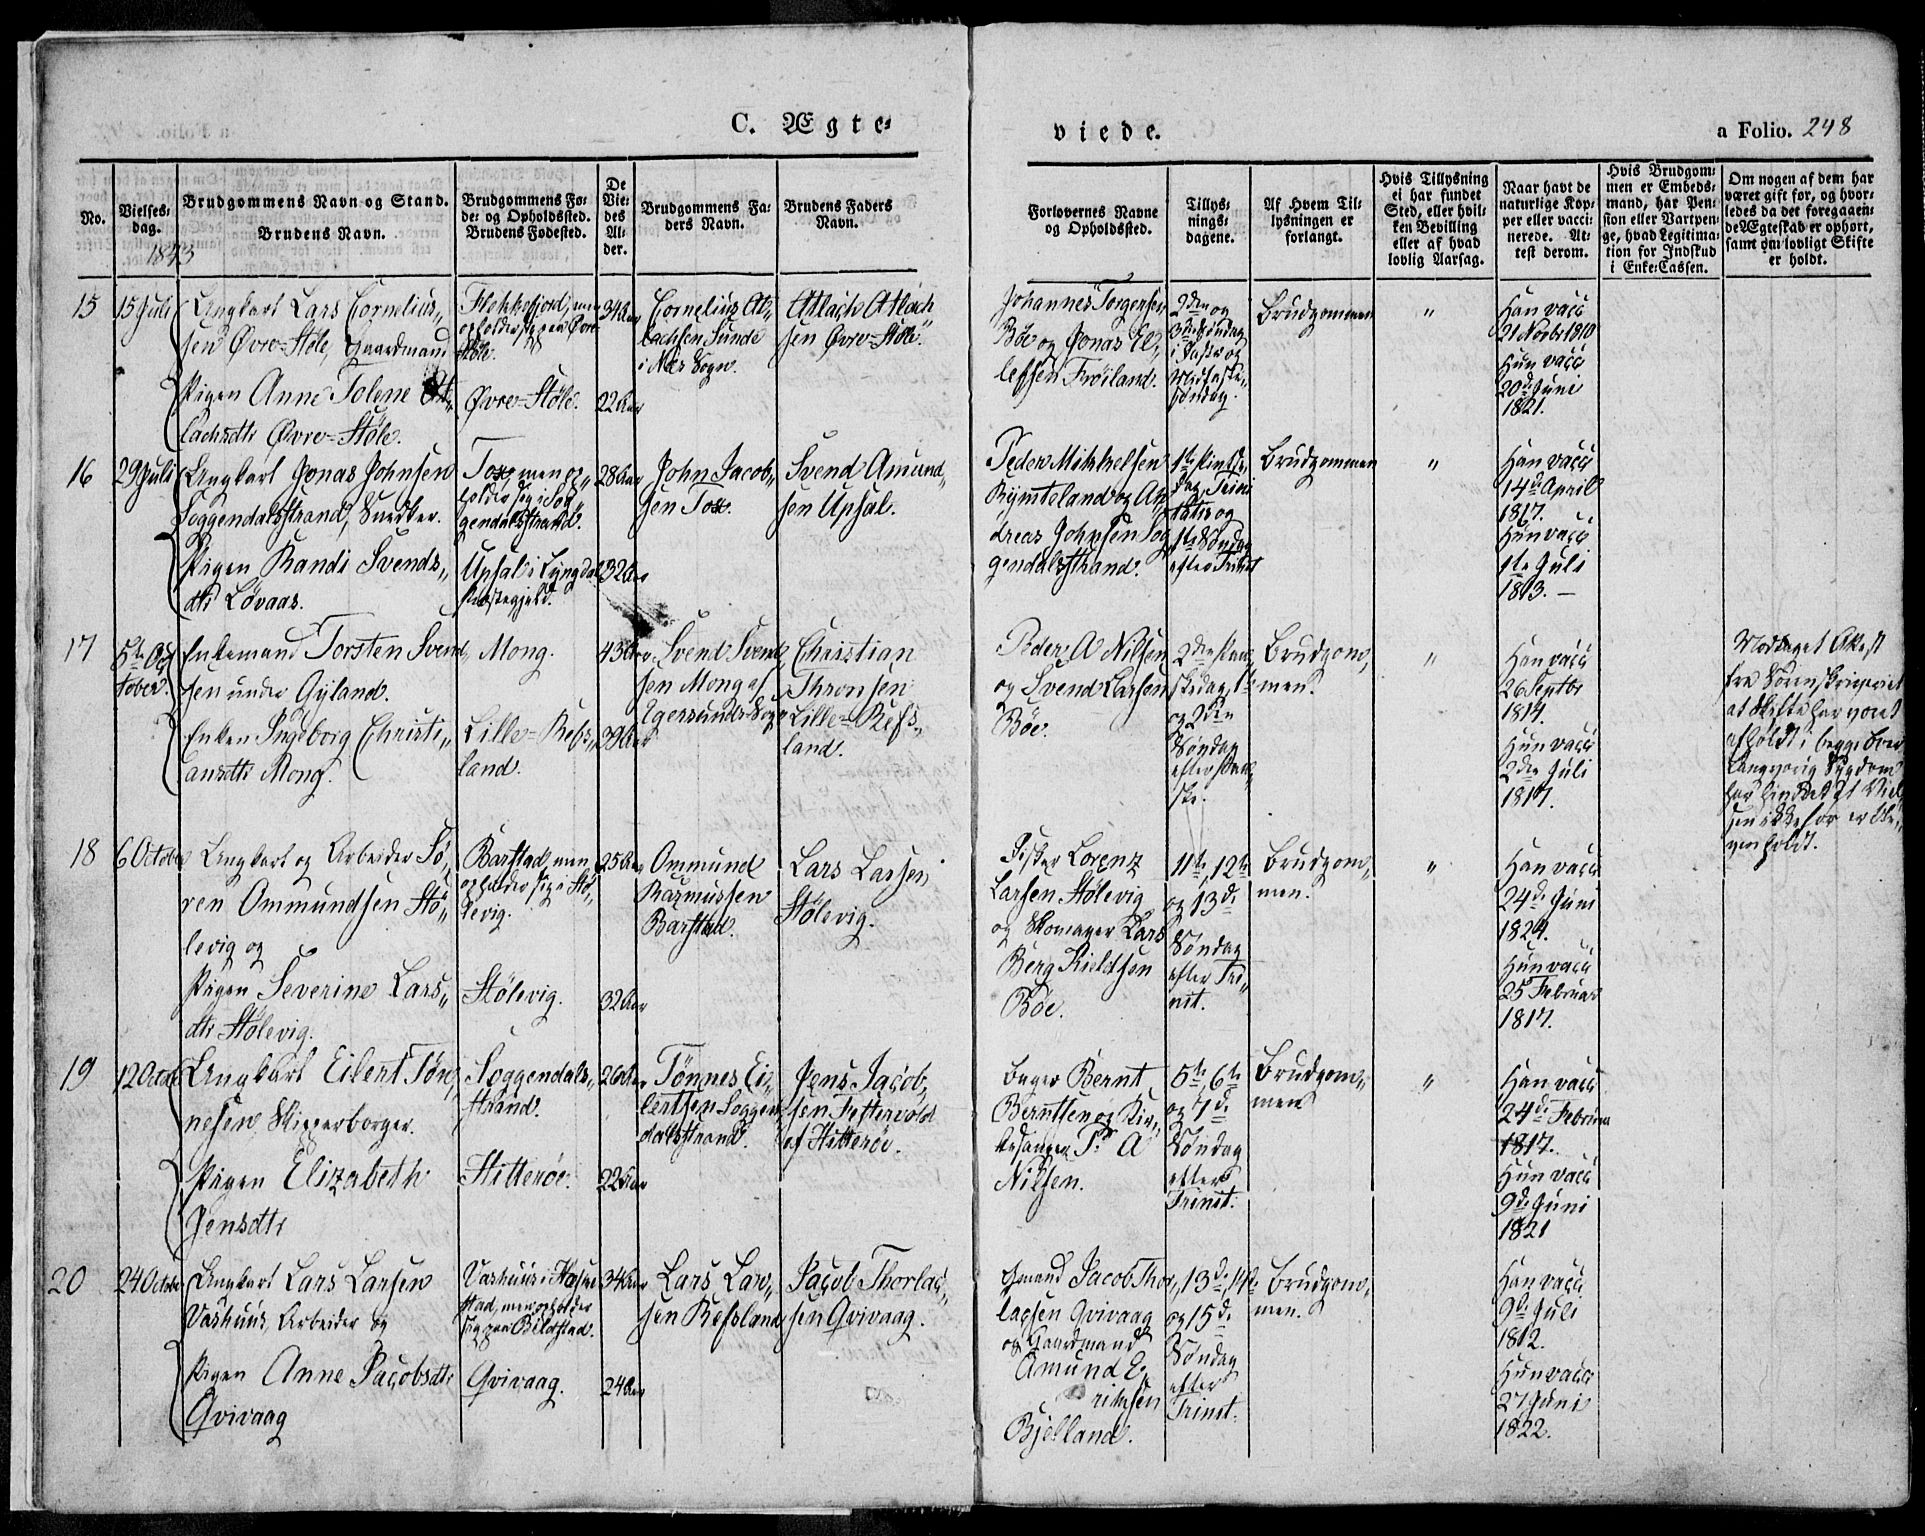 C. Ægte-
viede.
a Folio. 248
No.
Vielses-
dag.
1843
Brudgommens Navn og Stand.
Brudens Navn.
Brudgommens Fø-
de- og Opholdssted.
Brudens Fødested.
De
Vie-
des
Al-
der.
Brudgommens Fa-
ders Navn.
Brudens Faders
Navn.
Forlovernes Navne
og Opholdssted.
Tillys-
nings-
dagene.
Af Hvem Til-
lysningen er
forlangt.
Hvis Tillysning
ei har fundet
Sted, eller hvil-
ken Bevilling
eller af hvad
lovlig Aarsag.
Naar havt de
naturlige Kop-
per eller vacci-
nerede. At-
test derom.
Hvis Brudgom-
men er Embeds-
mand, har Pen-
sion eller Vartpen-
ge, hvad Legitima-
tion for Indskud
i Enke-Cassen.
Om nogen af dem har
været gift før, og hvor-
ledes da det foregaaen-
de Ægteskab er ophørt,
samt om lovligt Skifte
er holdt.
15
15 Juli
Ungkarl Lars Cornelius-
sen Øvre-Støle, Gaardmand
Pigen Anne Tolene At-
lachsdtr Øvre-Støle.
Flekkefjord, men
opholder sig paa Øvre
Støle.
Øvre-Støle.
34 Aar
22 Aar
Cornelius At-
lachsen Sunde
i Næs Sogn.
Atlach Atlach
sen Øvre-Støle.
Johannes Torgersen
Bøe og Jonas El-
lefsen Frøiland.
2den og
3die Søndag
i Faste og
Midfaste-
søndag.
Brudgommen
"
Han vacc
21 Novbr 1810
Hun vacc
20de Juni
1821.
16
29 Juli
Ungkarl Jonas Johnsen
Soggendalsstrand, Snedker.
Pigen Randi Svends-
dtr Løvaas.
Tox, men op-
holder sig i Sog-
gendalsstrand.
Upsal i Lyngdal
Præstegjeld.
28 Aar
32 Aar
John Jacob-
sen Tox.
Svend Amund-
sen Upsal.
Peder Mikkelsen
Rymteland og An-
dreas Johnsen Sog
gendalsstrand.
1ste Pintse-
dag, Trini
tatis og
1ste Søndag
efter Trinit
Brudgommen
"
Han vacc
14de April
1817.
Hun vacc
1ste Juli
1813. –
17
5te Oc
tober.
Enkemand Torsten Svend-
sen under Gyland.
Enken Ingeborg Christi-
ansdtr Mong.
Mong.
Lille-Refs-
land.
43 Aar
39 Aar
Svend Svend
sen Mong af
Egersunds Sogn
Christian
Thronsen
Lille-Refs-
land.
Peder A Nilsen
og Svend Larsen
Bøe.
2den Paa-
skedag, 1ste
og 2den
Søndag
efter Paa-
ske.
Brudgom-
men.
"
Han vacc
26 Septbr
1814.
Hun vacc
2den Juli
1817.
Modtaget Attest
fra Sorenskriveriet
at Skifte har været
afholdt i begge Boer
Langvarig Sygdom
har hindret at Viel-
sen ikke før er ble-
ven holdt.
18
6 October
Ungkarl og Arbeider Sø-
ren Ommundsen Stø-
levig og
Pigen Severine Lars-
dtr Stølevig.
Barstad, men
opholder sig i Stø-
levig.
Stølevig.
25 Aar
32 Aar
Ommund
Rasmussen
Barstad.
Lars Larsen
Stølevig.
Fisker Lorenz
Larsen Stølevig
og Skomager Lars
Berg Kieldsen
Bøe.
11te, 12te
og 13de
Søndag
efter Tri-
nit.
Brudgom-
men.
"
Han vacc
24de Juni
1824.
Hun vacc
25 Februar
1817.
19
12 Octob
Ungkarl Eilert Tøn-
nesen Skipperborger.
Pigen Elizabeth
Jensdtr
Soggendals-
strand.
Hitterøe.
26 Aar
22 Aar
Tønnes Ei-
lertsen Soggen
dalsstrand.
Jens Jacob-
sen
af Hitterøe.
Bager Bernt
Berntsen og Kir-
kesanger Pr A
Nilsen.
5te, 6te
og 7de
Søndag
efter
Trinit:
Brudgom-
men
"
Han vacc
24de Februar
1817.
Hun vacc
9de Juni
1821
20
24 October
Ungkarl Lars Larsen
Vashuus, Arbeider og
Pigen Anne Jacobsdtr
Qvivaag
Vashuus i Hæske
stad, men opholder
sig paa Bildstad.
Qvivaag.
34 Aar
24 Aar
Lars Lar-
sen Refsland
Jacob Thorlac-
sen Qvivaag.
Gmand Jacob Thor-
lacsen Qvivaag
og Gaardmand
Amund E-
riksen
Bjelland.
13de, 14de
og 15de
Søndag
efter
Trinit:
Brudgom-
men.
Han vacc
9de Juli
1812.
Hun vacc
27 Juni
1822.